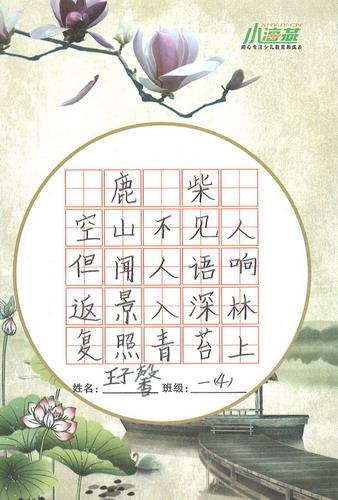 XHYJY.CN
小海燕
用心专注少儿教育和成长
鹿柴
空山不见人
但闻人语响
返景入深林
复照青苔上
姓名：王子馨 班级：一(4)